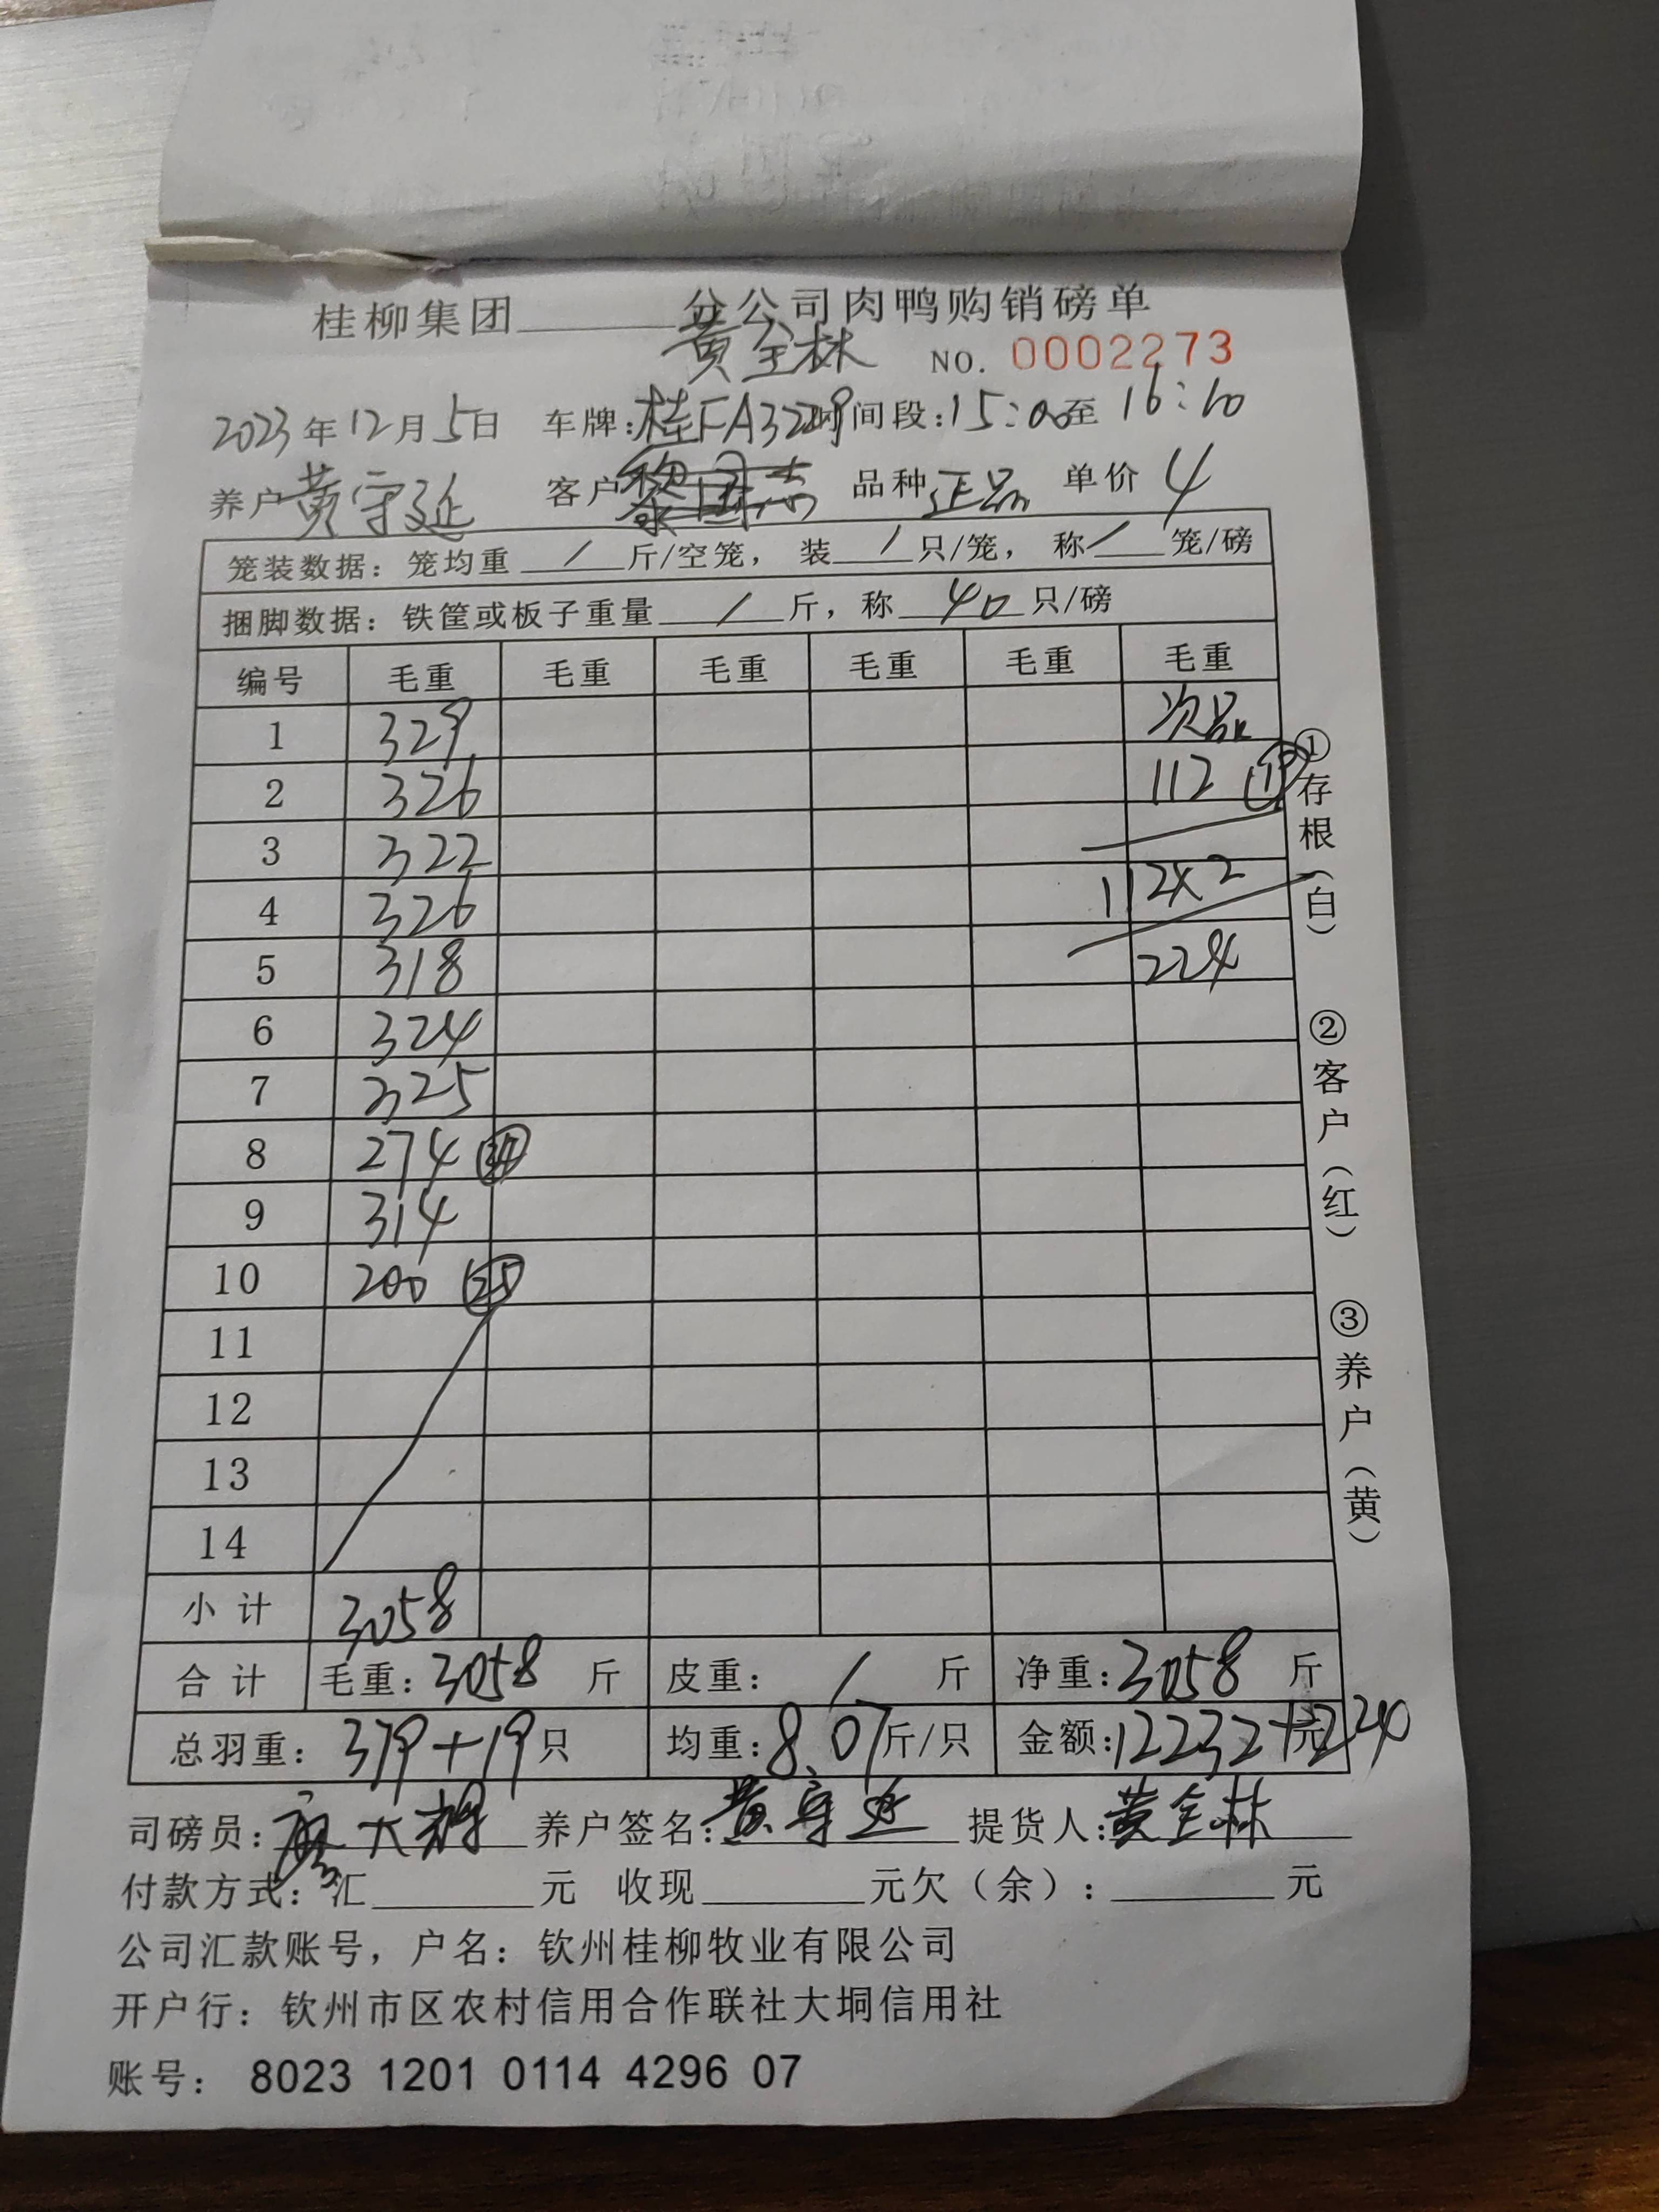 桂柳集团______分公司肉鸭购销磅单
黄全林 NO. 0002273
2023年12月5日 车牌:桂FA3229时间段:15:00至16:10
养户黄守延 客户 品种正品 单价4
笼装数据：笼均重 / 斤/空笼，装 / 只/笼，称 / 笼/磅
捆脚数据：铁筐或板子重量 / 斤，称 40 只/磅
编号 毛重 毛重 毛重 毛重 毛重 毛重
1 329 次品
2 326 112
3 322
4 326 112×2
5 318 224
6 324
7 325
8 274
9 314
10 200 25
11
12
13
14
小计 3058
合计 毛重：3058 斤 皮重： / 斤 净重：3058 斤
总羽重：379+19只 均重：8.07斤/只 金额：12232+224元
司磅员： 养户签名：黄守延 提货人：黄全林
付款方式：汇______元 收现______元欠（余）：______元
公司汇款账号，户名：钦州桂柳牧业有限公司
开户行：钦州市区农村信用合作联社大垌信用社
账号： 8023 1201 0114 4296 07
①存根（白）
②客户（红）
③养户（黄）